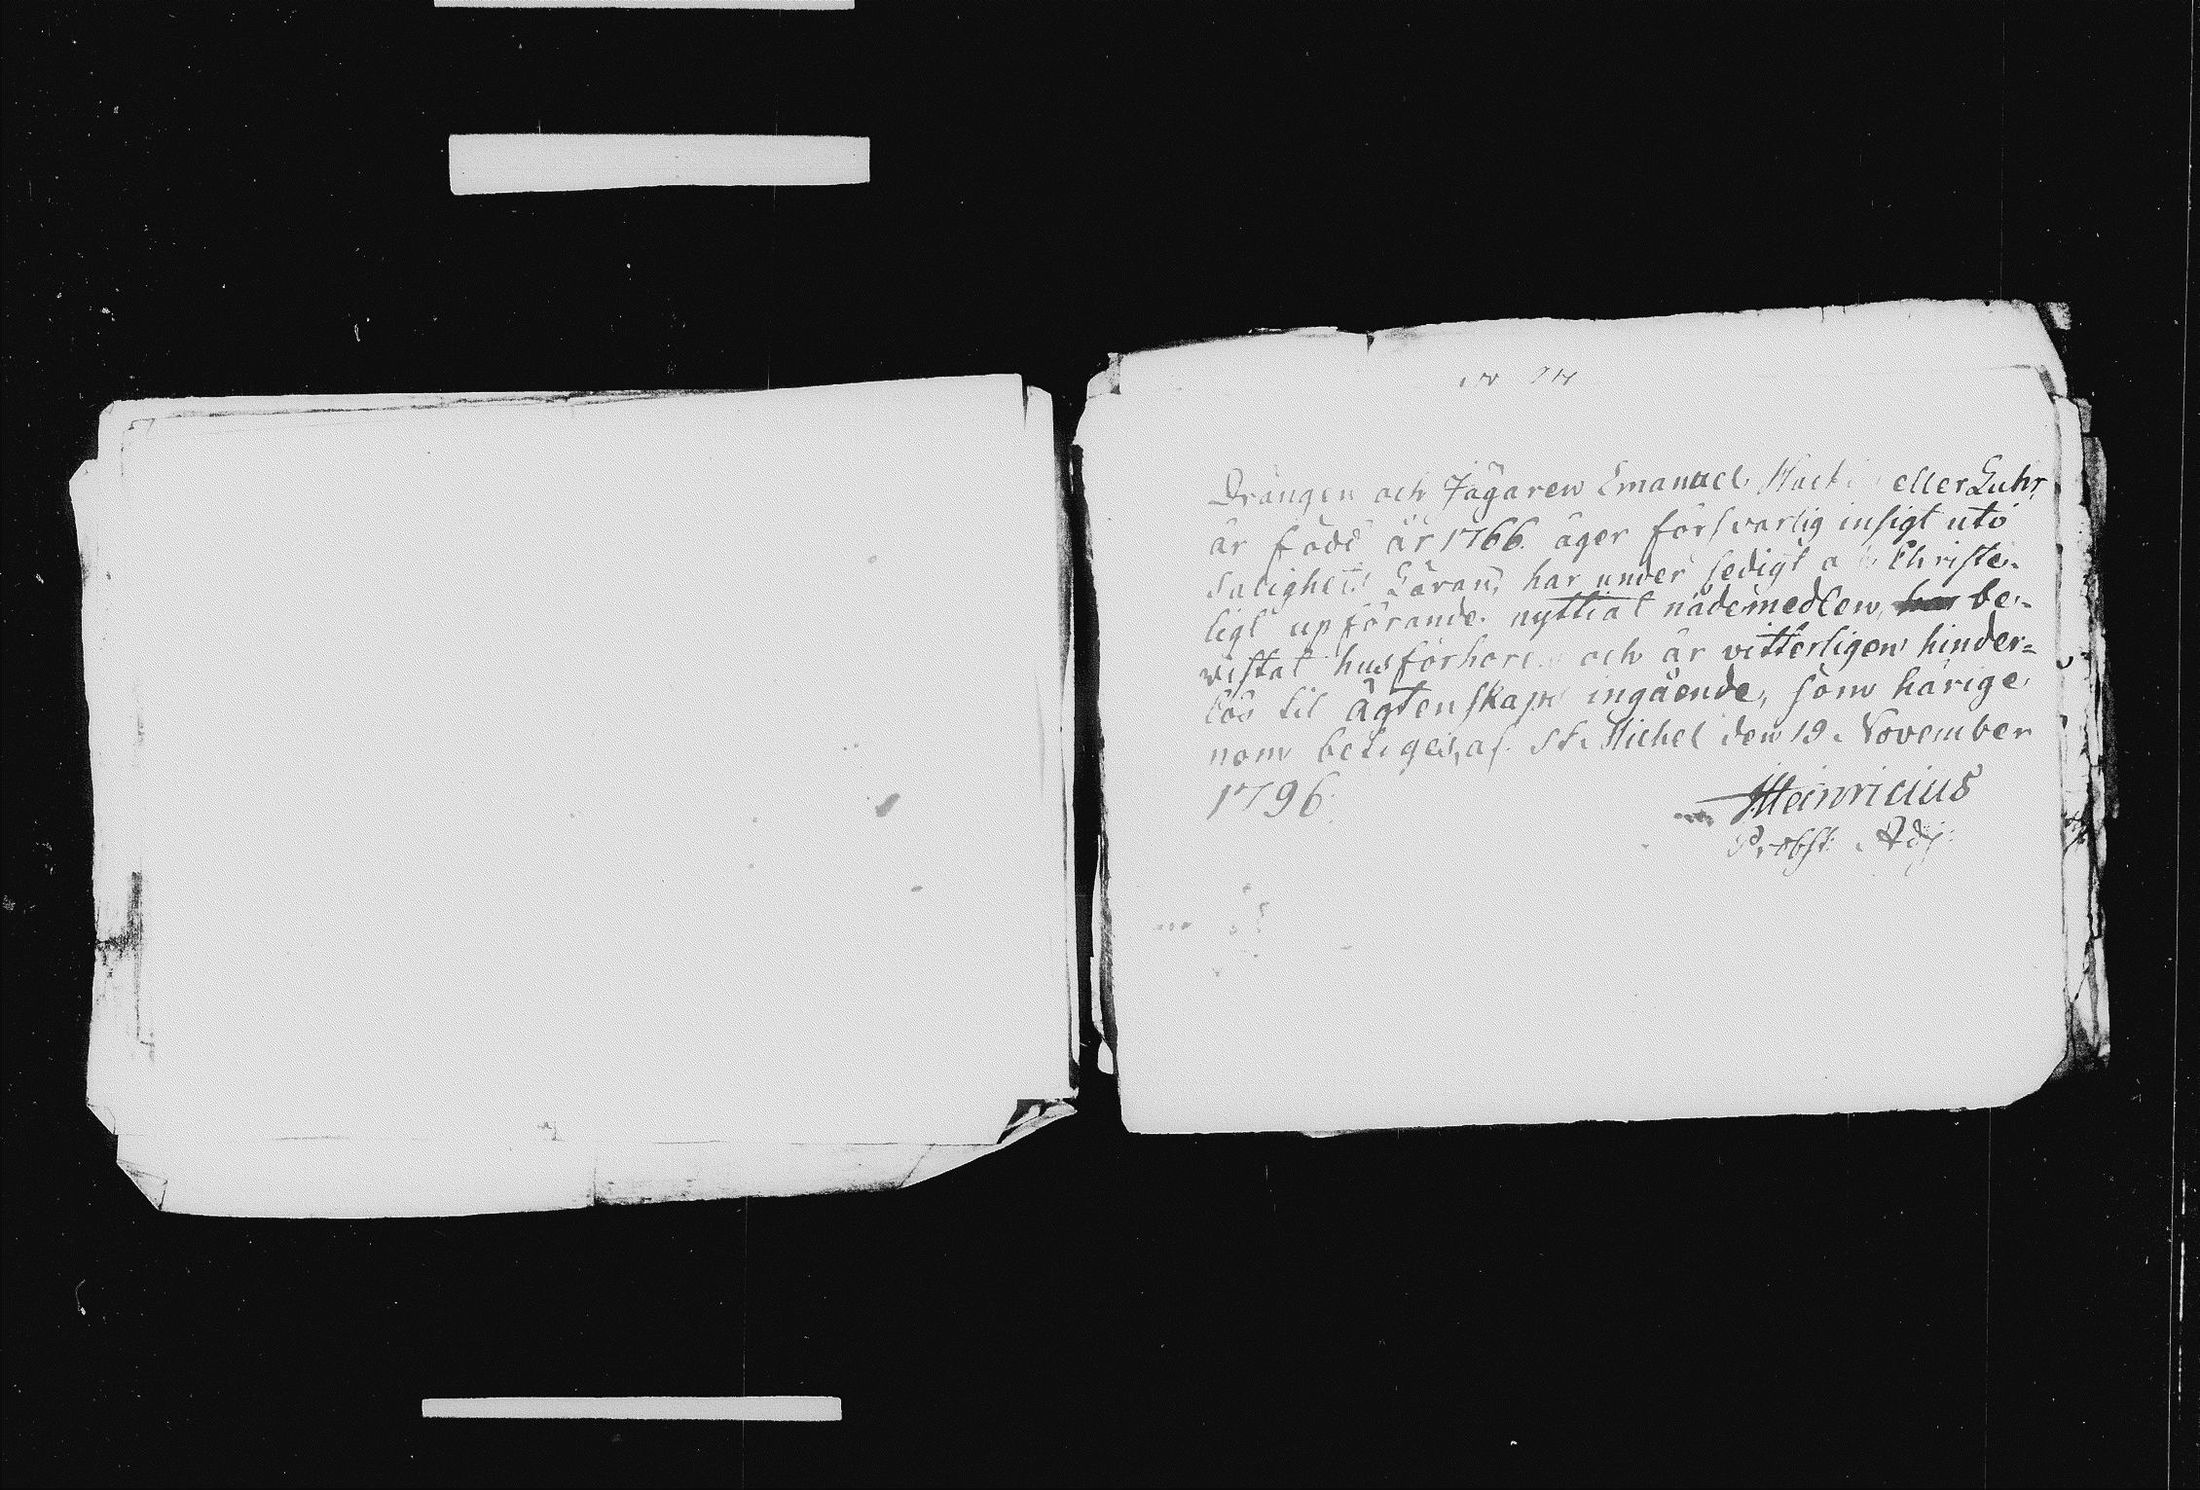 Drängen och Jägaren Emanuel eller Luhr
är född år 1766. äger försvarlig insigt uti
Salighets Läran, har under sedigt Christe-
ligt upförande nyttiat nådemedlen, har be-
vistat husförhören och är vitterligen hinder=
lös til ägtenskaps ingående, som härige
nom betygas, af St. Michel den 19. November
1796.
Heinricius
Probst. Adj.